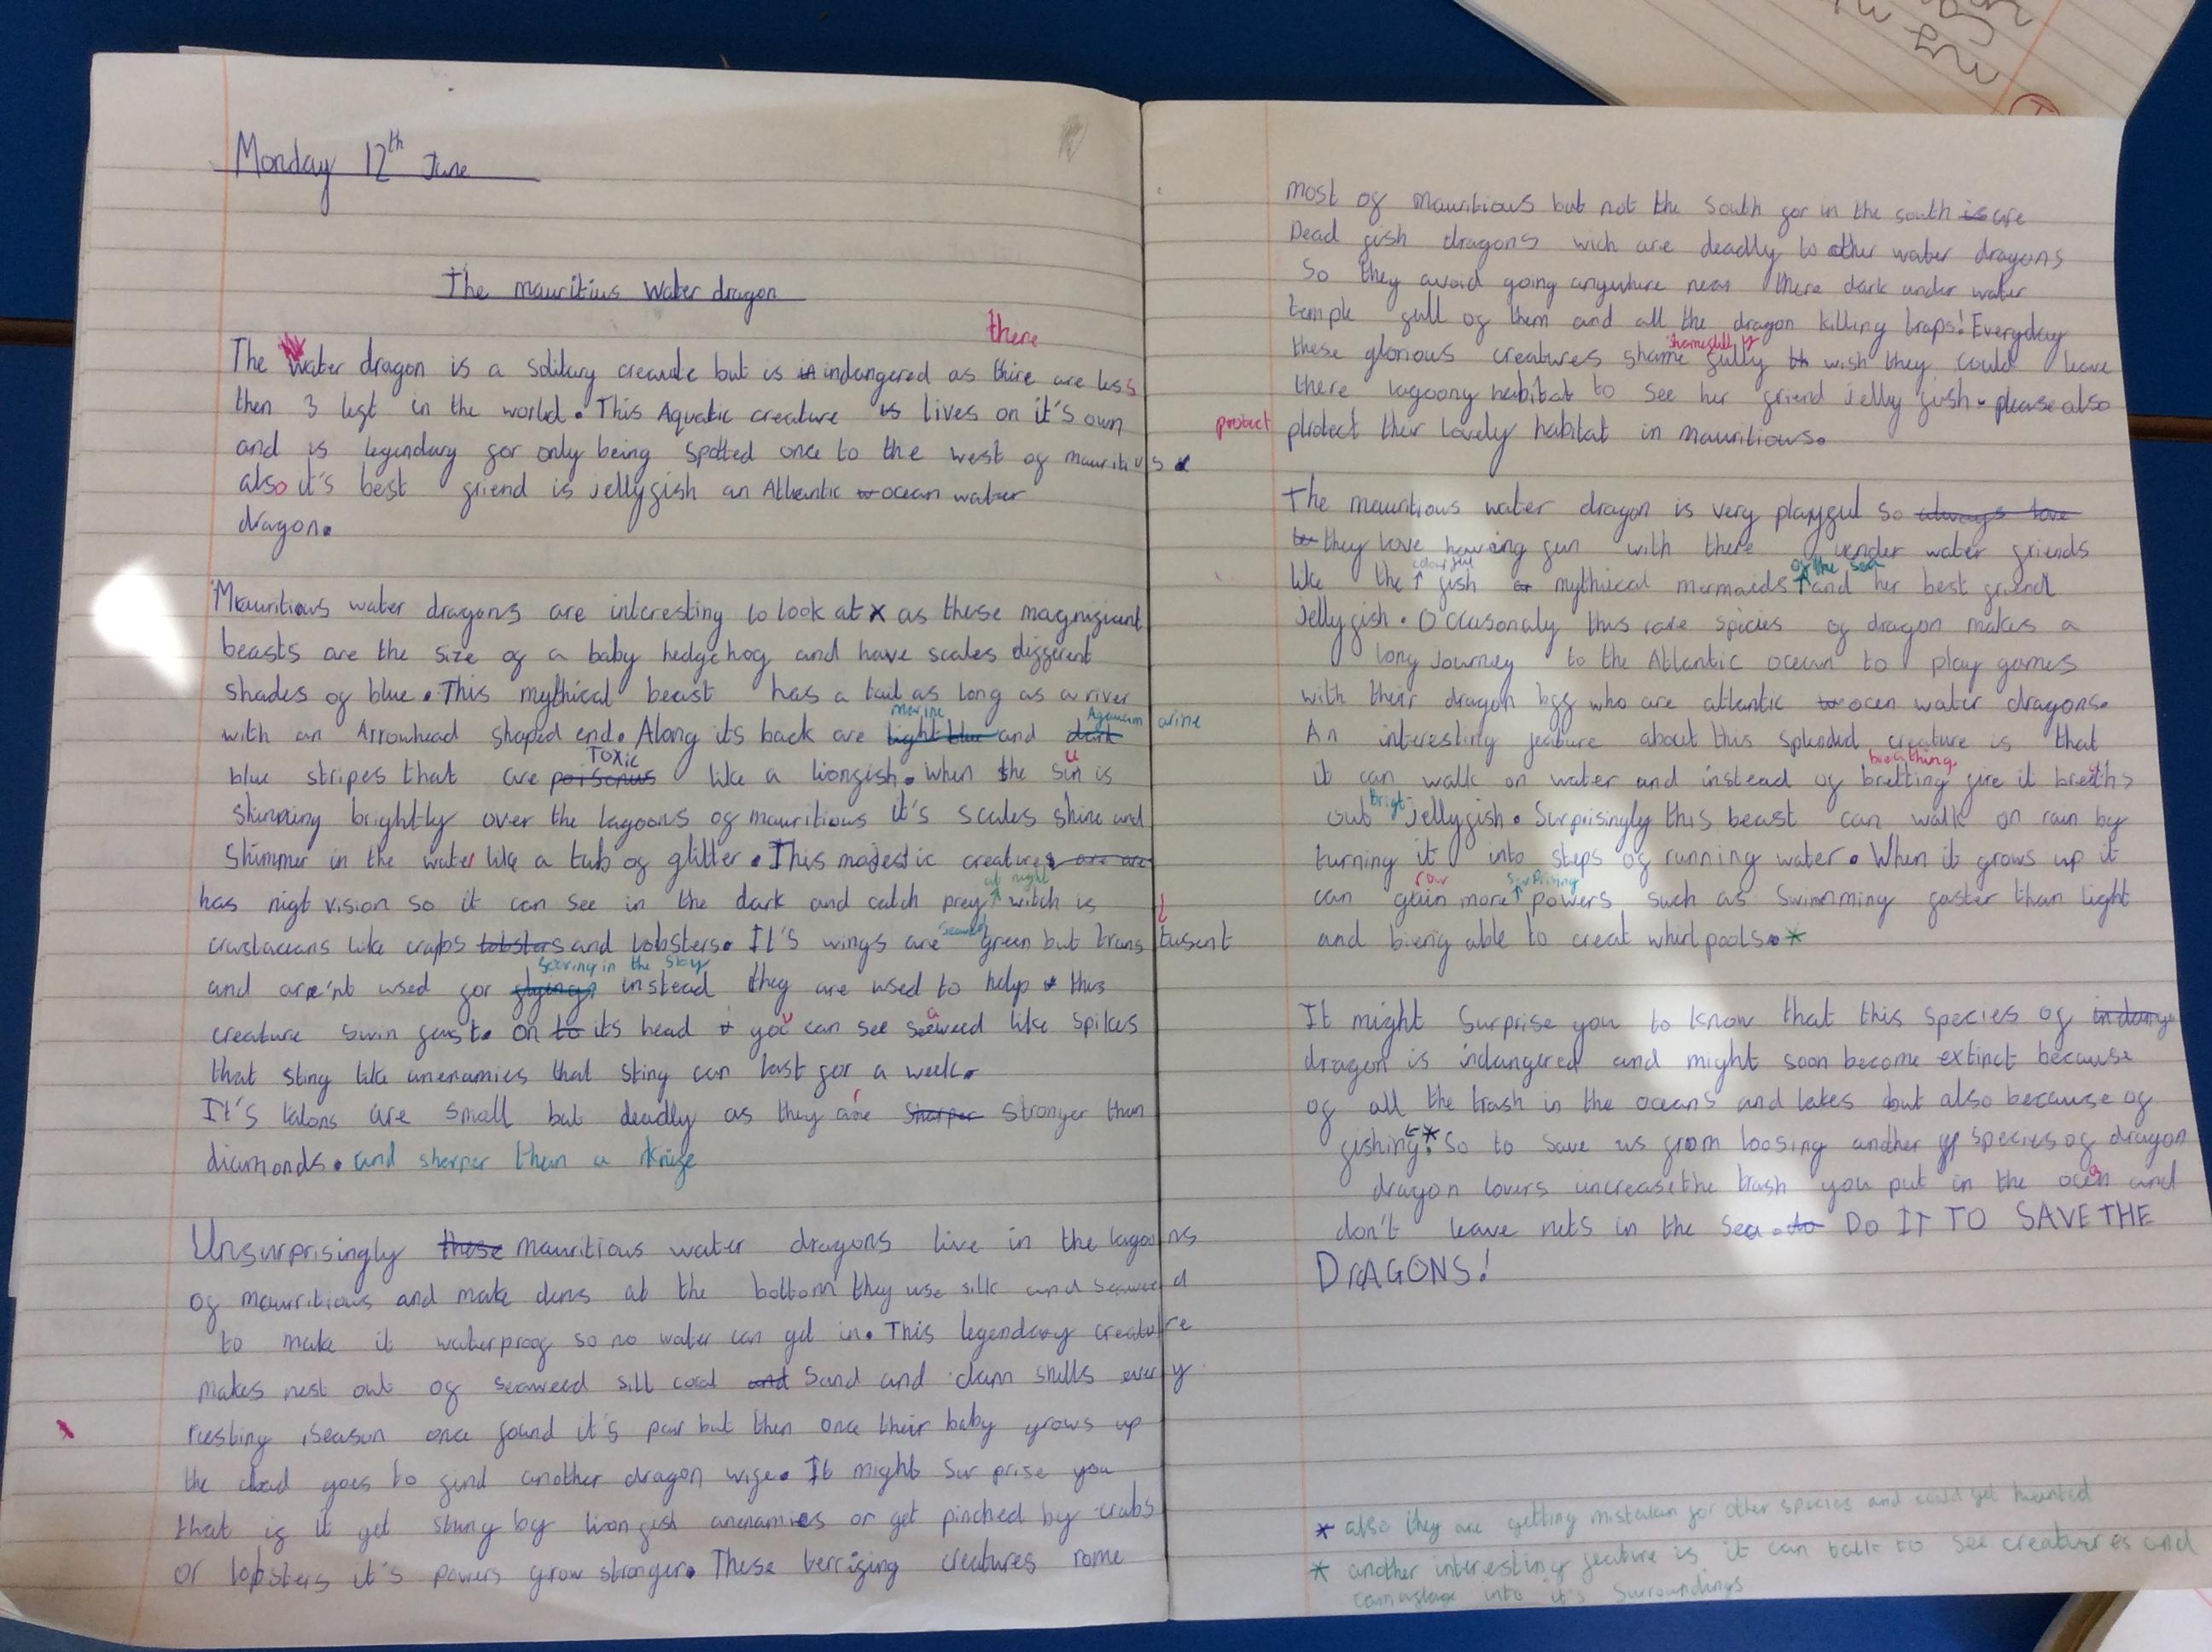 Monday 12th June
The mauritius water dragon
there
The Water dragon is a solitary creature but is in indangered as thire are less
then 3 left in the world. This Aquatic creature is lives on it's own
and is legendary for only being spotted once to the west of mauritius
also it's best friend is jellyfish an Atlantic ocean water
dragon.
Mauritious water dragons are interesting to look at x as these magnificent
beasts are the size of a baby hedgehog and have scales different
shades of blue. This mythical beast has a tail as long as a river
marine Aquamarine
with an Arrowhead shaped end. Along its back are light blue and dark
Toxic u
blue stripes that are poisonus like a lionfish. When the sun is
shinning brightly over the lagoons of mauritious it's scales shine and
shimmer in the water like a tub of glitter. This majestic creatures are are
at night
has nigt vision so it can see in the dark and catch prey witch is
seaweed
crustaceans like crabs lobsters and lobsters. It's wings are green but translusent
Soaring in the sky
and are'nt used for flying instead they are used to help this
creature swin fast. On to its head you can see seaweed like spikes
that sting like anenamies that sting can last for a week.
It's talons are small but deadly as they are sharper stronger than
diamonds. and sherper than a knife
Unsurprisingly these mauritious water dragons live in the lagoons
of mauritious and make dens at the bottom they use silk and seaweed
to make it waterproof so no water can get in. This legendary creature
makes nest out of seaweed sill coral and Sand and clam shells every
resting season once found it's pair but then once their baby grows up
the dad goes to find another dragon wife. It might Surprise you
that if it get stung by lionfish anenamies or get pinched by crabs
or lobsters it's powers grow stronger. These terrifing creatures rome
most of mauritious but not the South for in the south is are
Dead fish dragons wich are deadly to other water dragons
So they avoid going anywhere near there dark under water
temple full of them and all the dragon killing traps! Everyday
shamefully
these glorious creatures shame fully th wish they could leave
there lagoony habitat to see her friend Jelly fish. please also
protect
protect their lovely habitat in mauritious.
The mauritious water dragon is very playful so always love
to they love having fun with there under water friends
colourful of the sea
like the fish or mythical mermaids and her best friend
Jellyfish. Occasonaly this rare species of dragon makes a
long Journey to the Atlantic ocean to play games
with their dragon bff who are atlantic ocen water dragons.
An interesting feature about this splended creature is that
breathing
it can walk on water and instead of bretting fire it breaths
Brigt
out Jellyfish. Surprisingly this beast can walk on rain by
turning it into steps of running water. When it grows up it
surprising
can gain more powers such as swimming faster than light
and bieng able to creat whirlpools. *
It might Surprise you to know that this species of indang
dragon is indangered and might soon become extinct because
of all the trash in the oceans and lakes but also because of
fishing. * So to save us from loosing another species of dragon
dragon lovers uncrease the trash you put in the ocean and
don't leave nets in the sea. to DO IT TO SAVE THE
DRAGONS!
* also they are getting mistaken for other species and could get hunted
* another interesting feature is it can talk to see creatures and
camaflage into it's surroundings